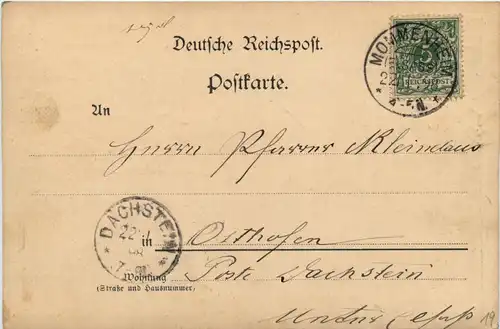 Deutsche Reichspost.
Postkarte.
MOMMENHEIM
22
4-5 N.
REICHSPOST
5
An
Herrn Pfarrer Kleinclaus
DACHSTEIN
22
98
in Osthofen
Wohnung Poste Dachstein
(Straße und Hausnummer)
Unter Elsaß
19